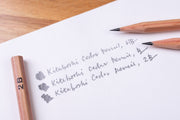 Kitaboshi Cedar Pencil, 2B
Kitaboshi Cedar Pencil, B
Kitaboshi Cedar Pencil, 2B
2B